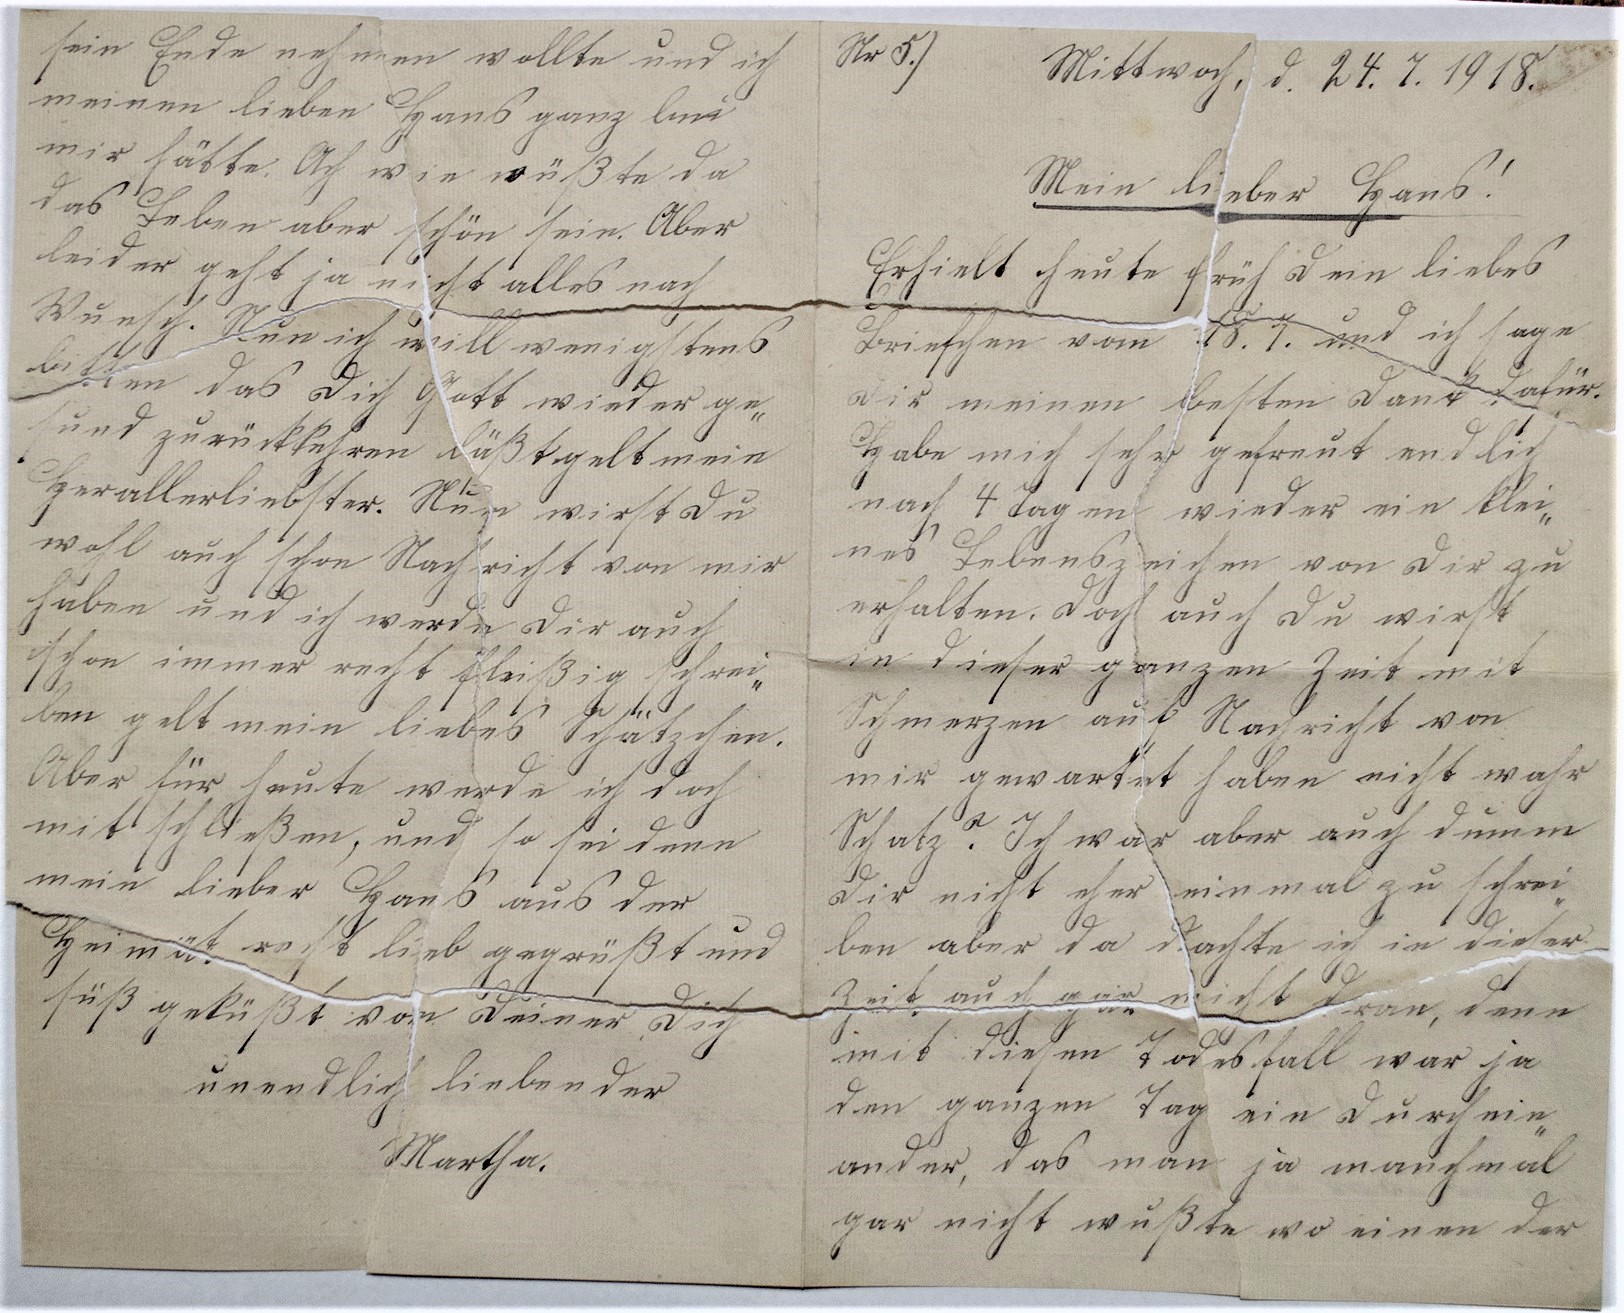 Nr 5.)
Mittwoch, d. 24. 7. 1918.
Mein lieber Hans!
Erhielt heute früh Dein liebes
Briefchen vom 18. 7. und ich sage
Dir meinen besten Dank dafür.
Habe mich sehr gefreut endlich
nach 4 Tagen wieder ein klei„
nes Lebenszeichen von Dir zu
erhalten. Doch auch Du wirst
in dieser ganzen Zeit mit
Schmerzen auf Nachricht von
mir gewartet haben nicht wahr
Schatz? Ich war aber auch dumm
Dir nicht eher einmal zu schrei„
ben aber da dachte ich in dieser
Zeit auch gar nicht dran, denn
mit diesen Todesfall war ja
den ganzen Tag ein Durchein„
ander, das man ja manchmal
gar nicht wußte wo einen der
sein Ende nehmen wollte und ich
meinen lieben Hans ganz bei
mir hätte. Ach wie müßte da
das Leben aber schön sein. Aber
leider geht ja nicht alles nach
Wunsch. Nun ich will wenigstens
bitten das Dich Gott wieder ge„
sund zurückkehren läßt gelt mein
Herallerliebster. Nun wirst Du
wohl auch schon Nachricht von mir
haben und ich werde Dir auch
schon immer recht fleißig schrei„
ben gelt mein liebes Schätzchen.
Aber für heute werde ich doch
mit schließen, und so sei denn
mein lieber Hans aus der
Heimat recht lieb gegrüßt und
süß geküßt von Deiner Dich
unendlich liebender
Martha.